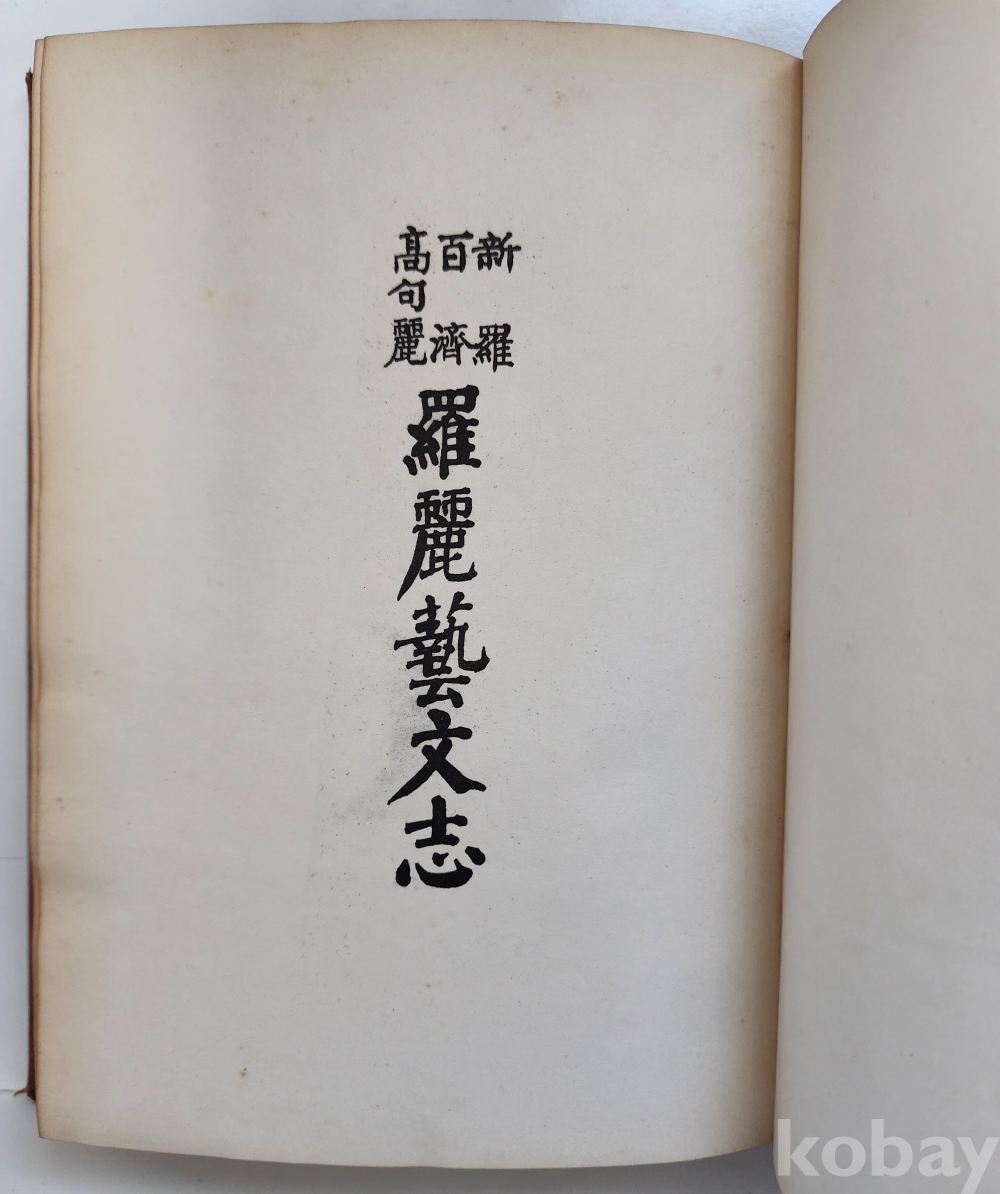 新羅
百濟
高句麗
羅麗藝文志
kobay